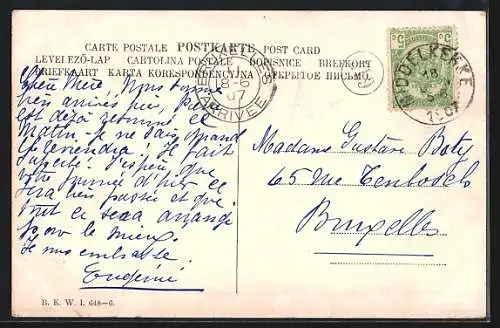 CARTE POSTALE POSTKARTE POST CARD
LEVELEZŐ-LAP CARTOLINA POSTALE DOPISNICE BREFKORT
BRIEFKAART KARTA KORESPONDENCYJNA ОТКРЫТОЕ ПИСЬМО.
5 5
MIDDELKERKE
1907
ARRIVÉE
Chère Mère, Nous sommes
bien arrivés hier,
est déjà retourné ce
matin. Je ne sais quand
il reviendra! Il fait
superbe! J'espère que
votre journée d'hier se
sera bien passée et que
tout ce sera arrangé
pour le mieux.
Je vous embrasse.
Eugénie
Madame Gustave Boty
65 rue Tenbosch
Bruxelles
B. K. W. I. 648-6.